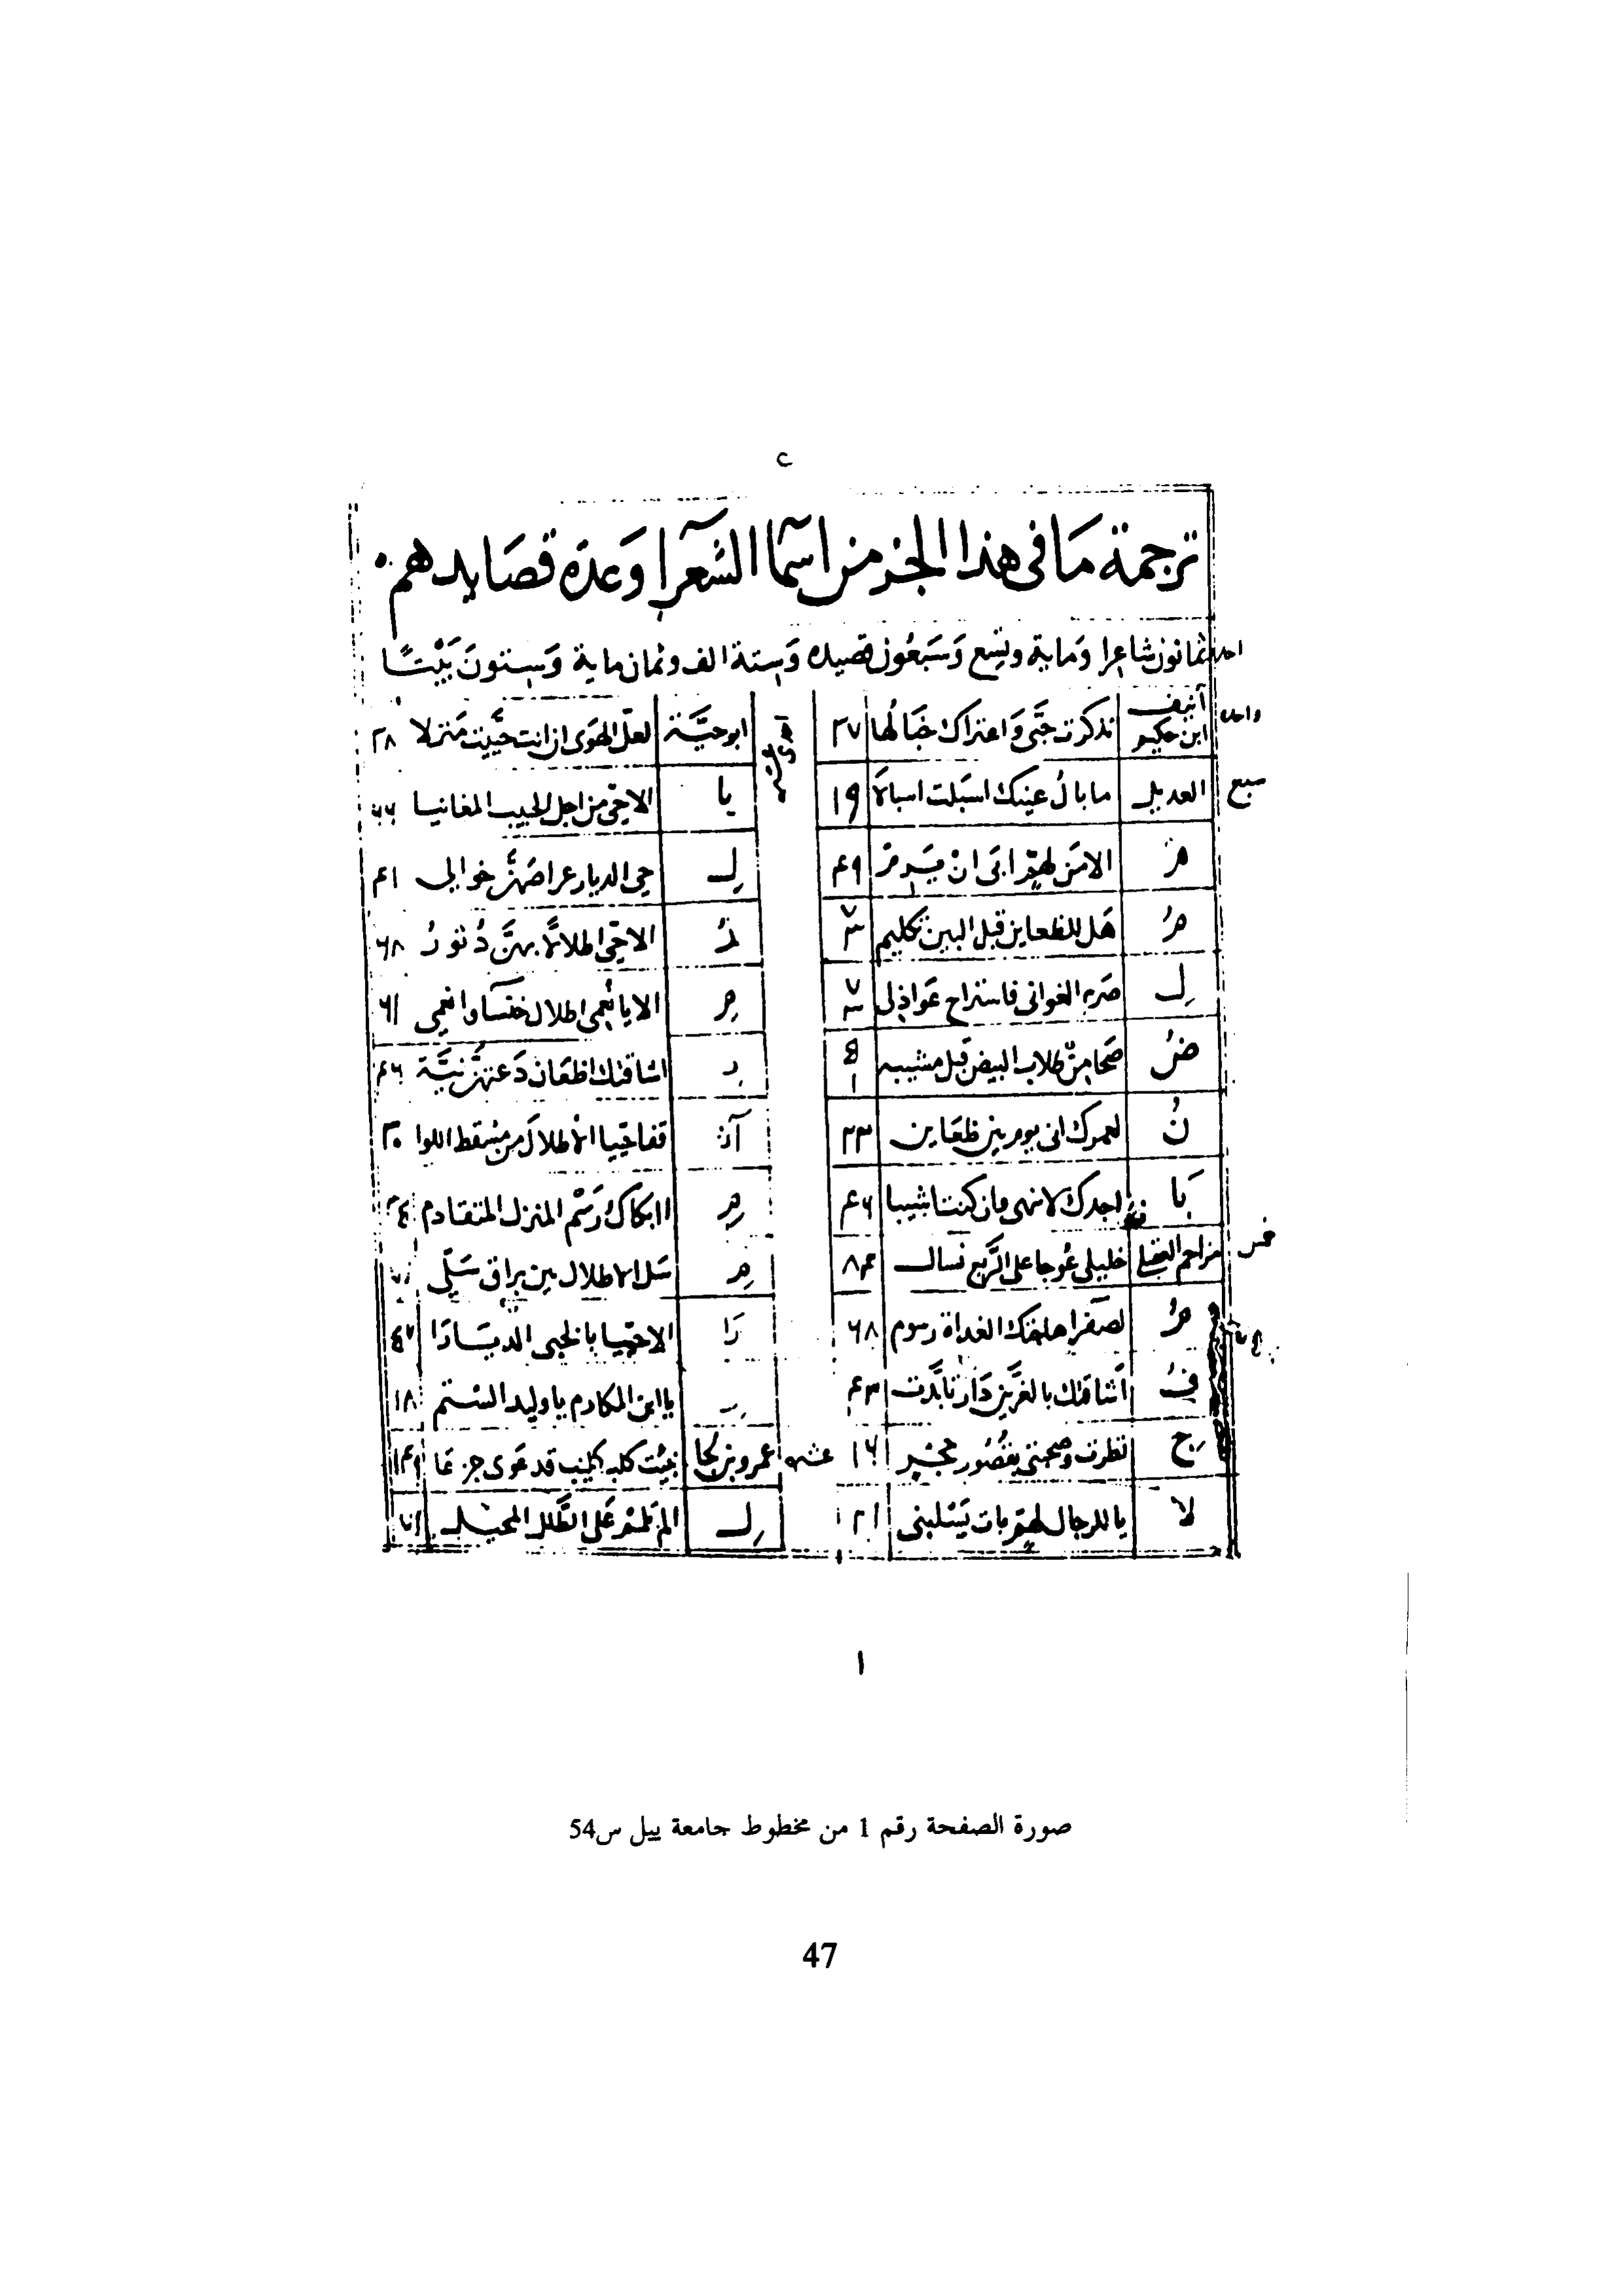 ترجمة ما في هذا الجز من اسما الشعرا وعدة قصايدهم
احد ثمانون شاعرا وماية وتسع وسبعون قصيده وستة الف وثمان ماية وستون بيتا
واحد انيف ابن حكيم تذكرت حبى واعتراك خبالها ٢٧ ابو حية لعل الهوى ان انت حييت منزلا ٣٨
سبع العديل ما بال عينك اسبلت اسبالا ١٩ يا الا حي من اجل الحبيب المغانيا
م الا من لهم ابى ان يريم ل حي الديار عراصهن خوالي
م هل للظعاين قبل البين تكليم ر الا حي اطلالا بهن دثور ٦٨
ل صرم الغواني فاستراح عواذلي م الا يا نعمي اطلال خنساء وانعمي ٦١
ض صحا من طلاب البيض قبل مشيبه اشاقتك اظعان دعتهن نية
ن لعمرك اني يوم بين ظعاين ٢٣ قفا حييا الاطلال من مسقط اللوا ٣٠
با اجدك لا تنهى وان كنت اشيبا م ابكاك رسم المنزل المتقادم
خمس مزاحم العقيلي خليلي عوجا على الربع نسال م سل الاطلال بين براق سلي
م لصفرا هاجتك الغداة رسوم ٦٨ را الا حييا بالخبي الديارا
ف اشاقتك بالغرين دار تابدت يا ابن المكارم يا وليد
ح نظرت وصحبتي بقصور حجر عشره عمرو بن لجا نبيت كلب كليب قد عوى جزعا
لا يا للرجال لهم بات يسلبني ل الم تلمم على الطلل المحيل
١
صورة الصفحة رقم 1 من مخطوط جامعة ييل س54
47